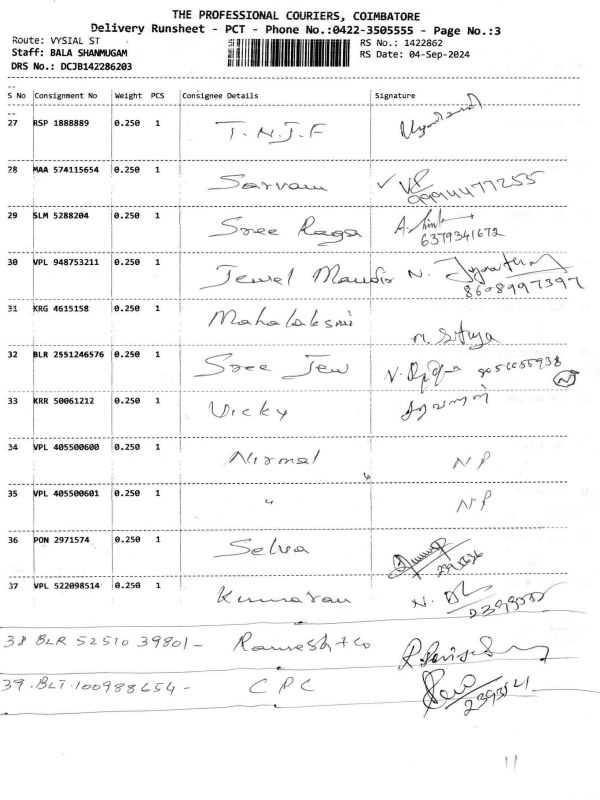 THE PROFESSIONAL COURIERS, COIMBATORE
Delivery Runsheet - PCT - Phone No.:0422-3505555 - Page No.:3
Route: VYSIAL ST RS No.: 1422862
Staff: BALA SHANMUGAM RS Date: 04-Sep-2024
DRS No.: DCJB142286203
S No Consignment No Weight PCS Consignee Details Signature
27 RSP 1888889 0.250 1 T.N.J.F
28 MAA 574115654 0.250 1 Sarvam
29 SLM 5288204 0.250 1 Sree Raga
6379341672
30 VPL 948753211 0.250 1 Jewel Mandir N.
8608997397
31 KRG 4615158 0.250 1 Mahalaksmi
32 BLR 2551246576 0.250 1 Sree Jew
33 KRR 50061212 0.250 1 Vicky
34 VPL 405500600 0.250 1 Nirmal NP
35 VPL 405500601 0.250 1 " NP
36 PON 2971574 0.250 1 Selva
37 VPL 522098514 0.250 1 Kumaran
38 BLR 52510 39801 - Ramesh + Co
39. BLT. 100988654 - CPC
11